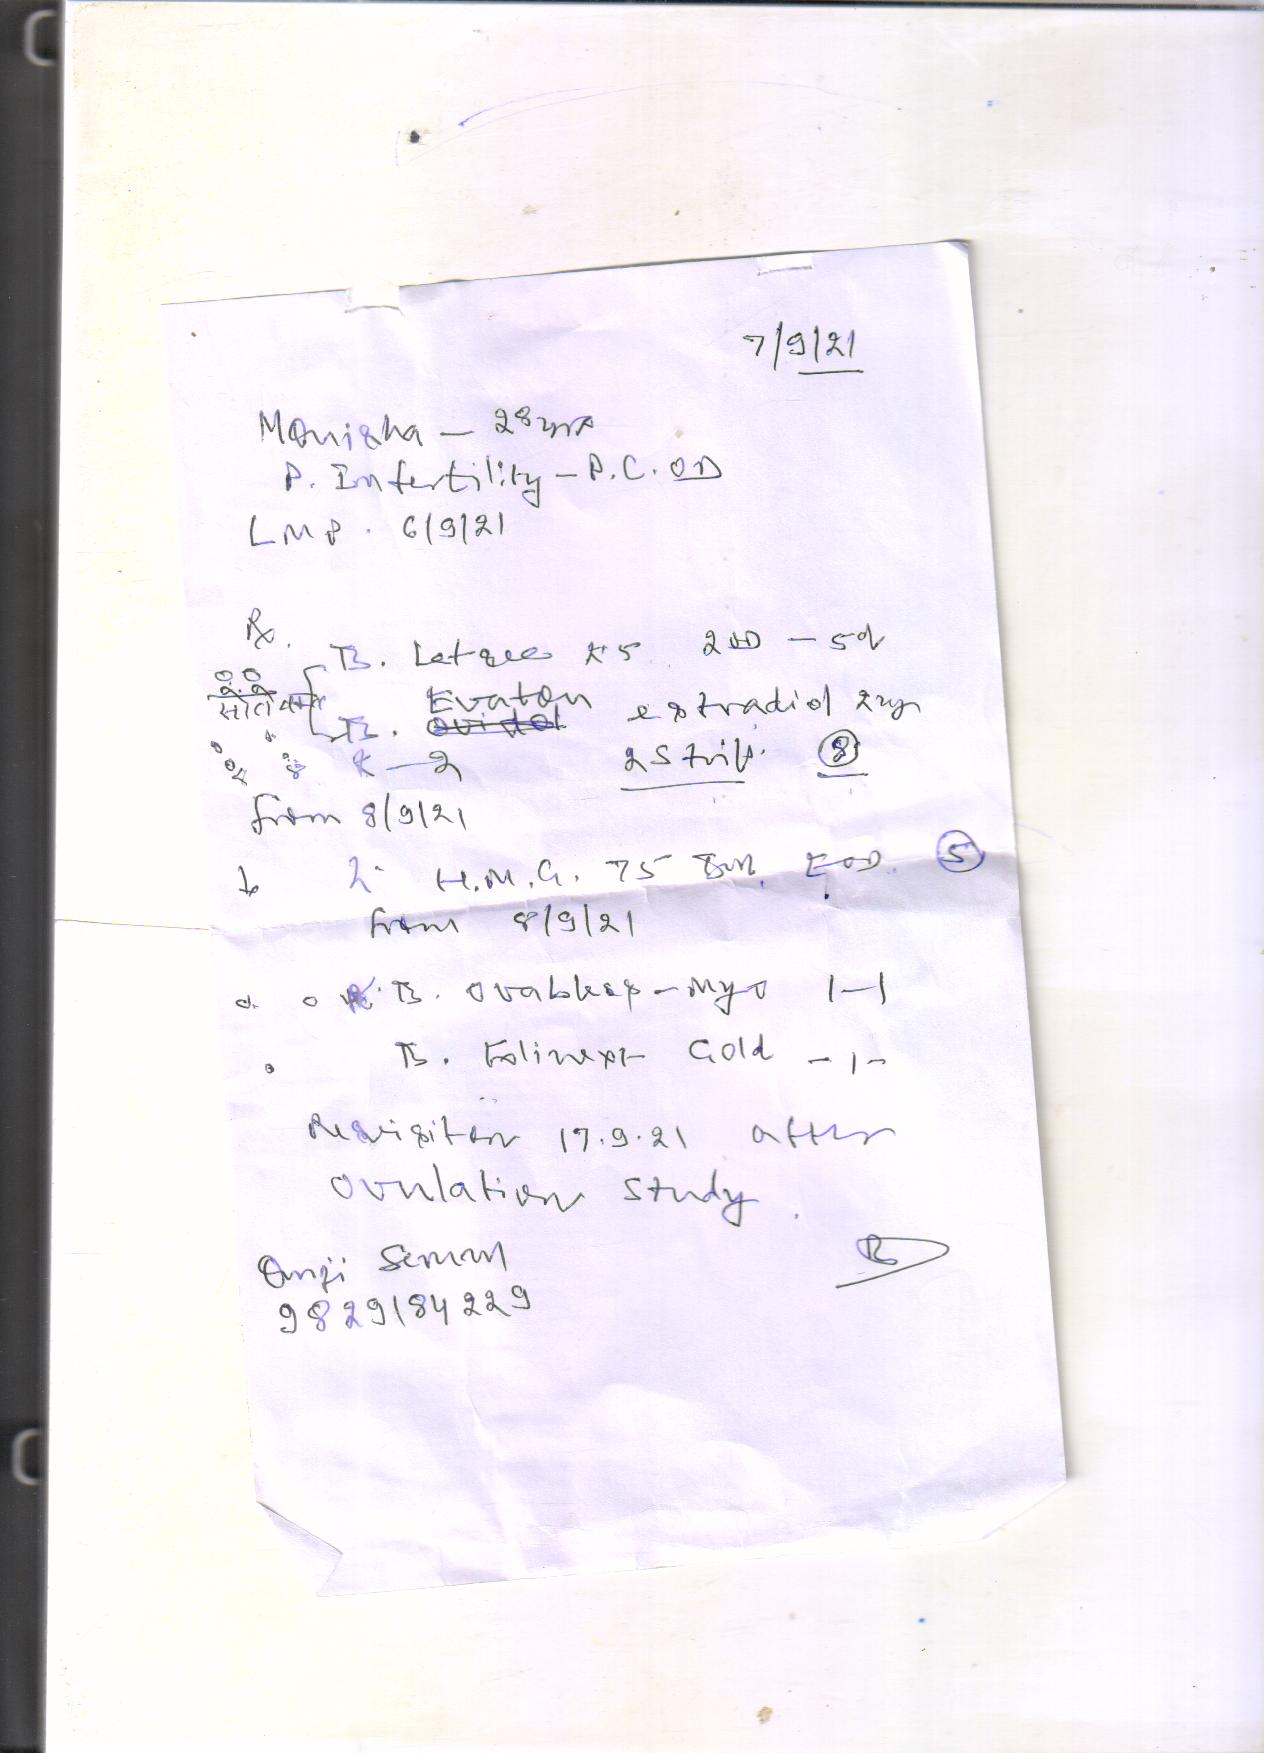 7/9/21
Manisha - 28 yrs
P. Infertility - P.C.OD
LMP. 6/9/21
Rx.
TB. Letroz x 5 2 OD - 5d
सोते वक्त
Evaton
TB. estradiol 2 mg
x - 2 2 Strip. 8
from 8/9/21
H.M.G. 75 EOD. 5
from 8/9/21
TB. Ovabless - Myo 1-1
TB. Folinext Gold - 1 -
Revisit on 17.9.21 after
ovulation study.
9829184229